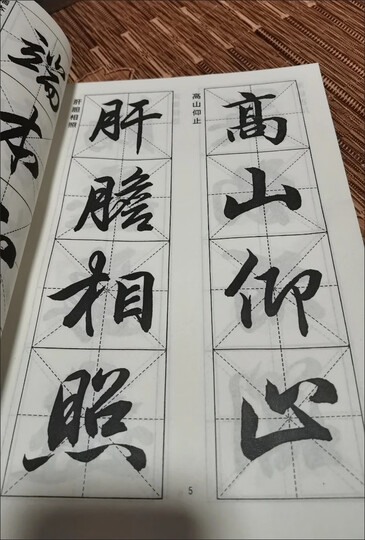 高山仰止
高山仰止
肝胆相照
肝膽相照
5
端